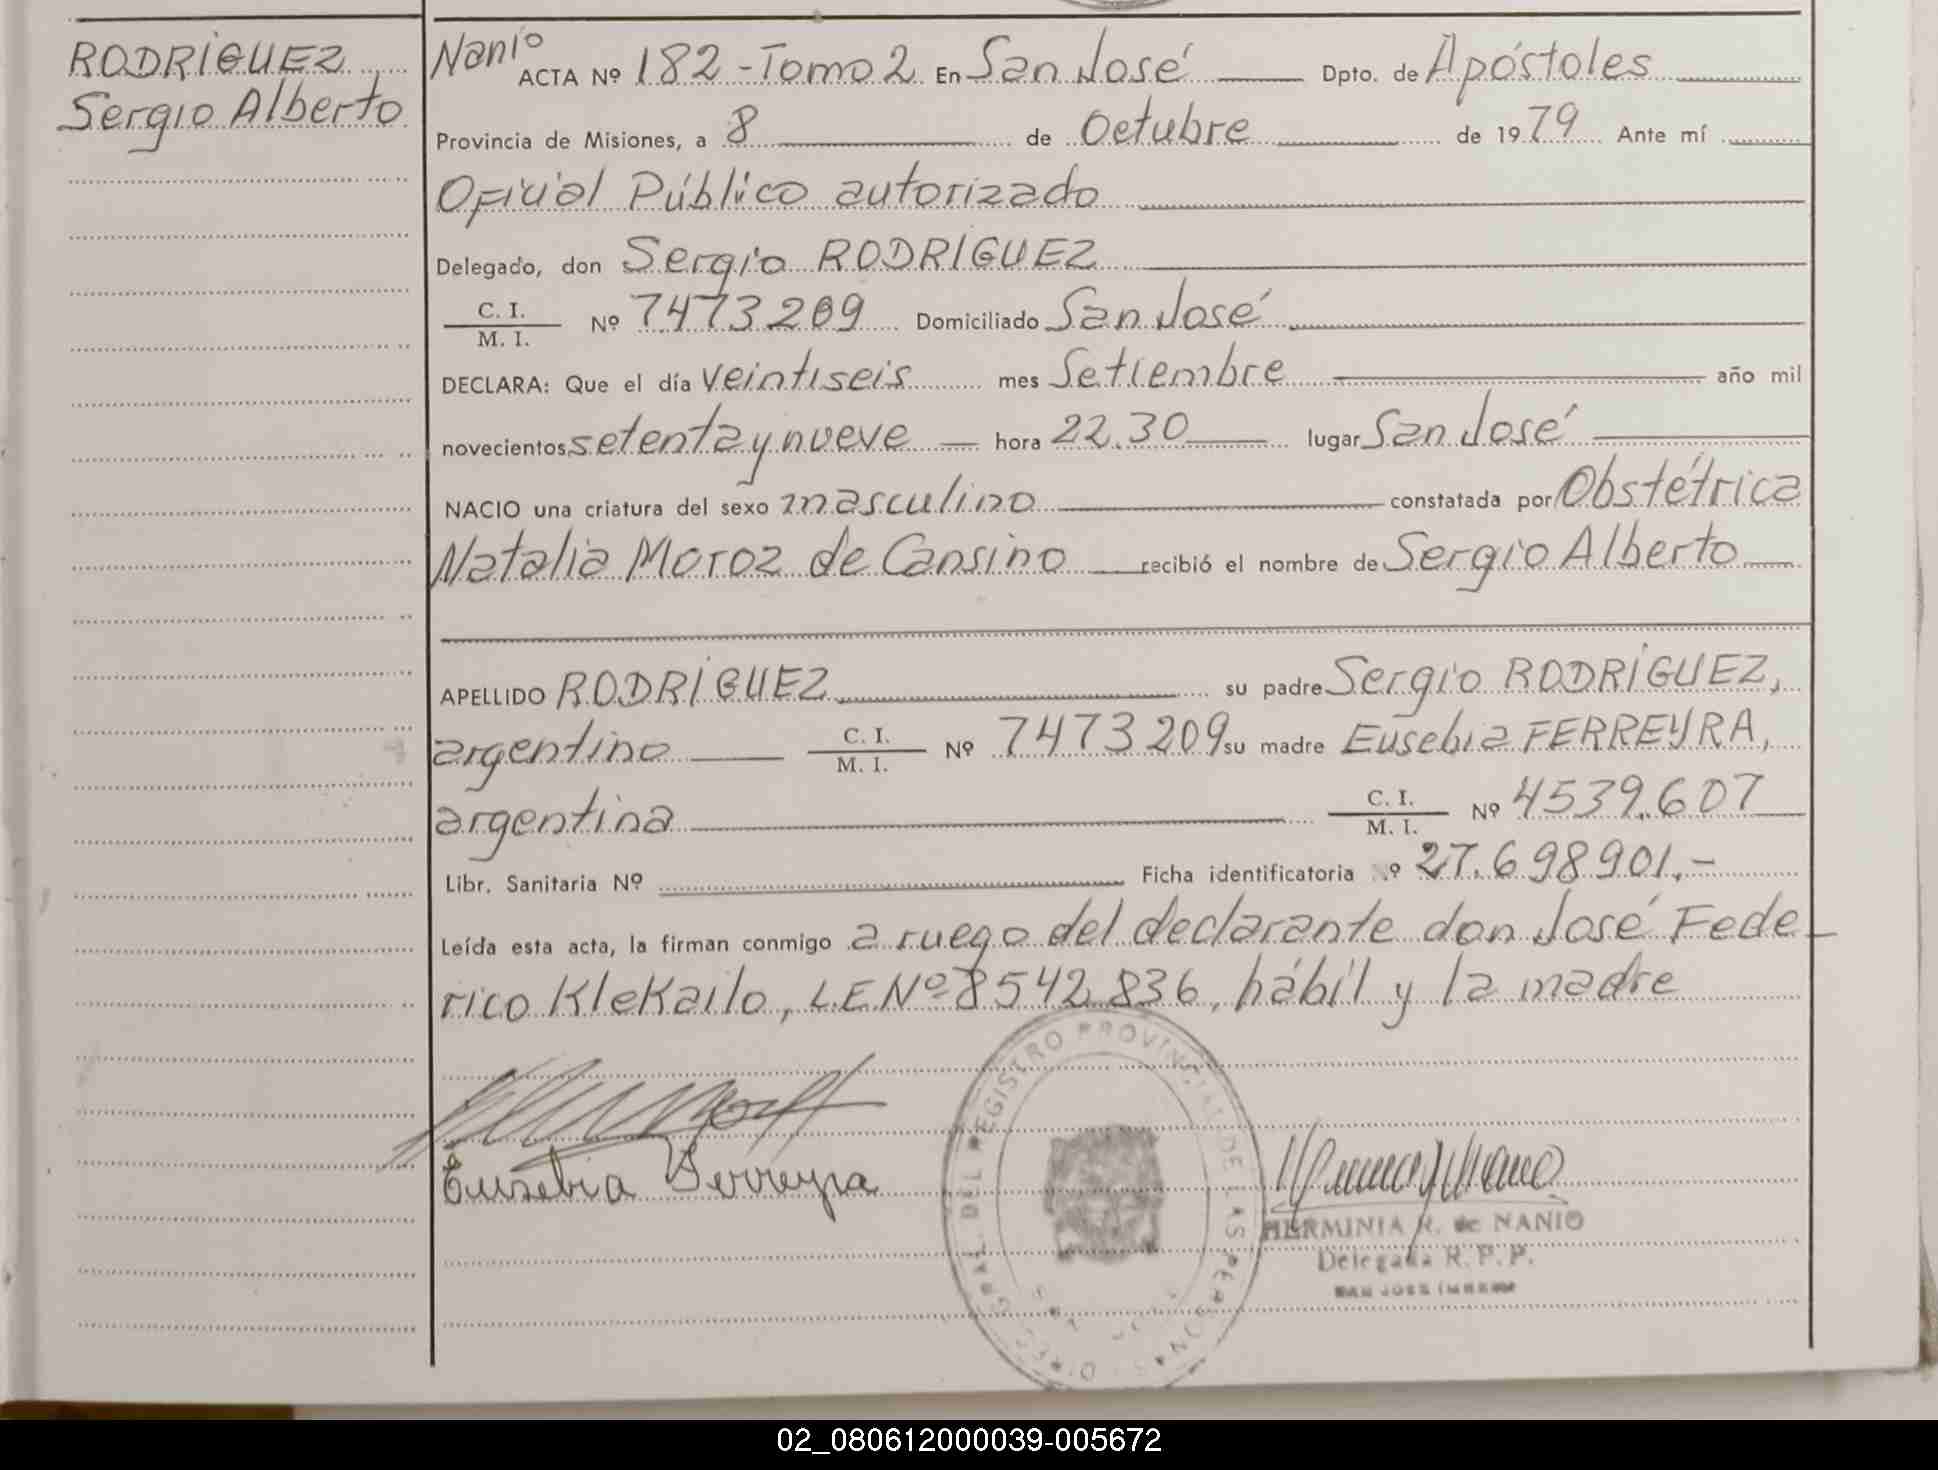 RODRÍGUEZ
Sergio Alberto
Nanio
ACTA Nº 182 - Tomo 2 En San José Dpto. de Apóstoles
Provincia de Misiones, a 8 de Octubre de 1979 Ante mí
Oficial Público autorizado
Delegado, don Sergio RODRÍGUEZ
C. I.
M. I.
Nº 7473209 Domiciliado San José
DECLARA: Que el día veintiseis mes Setiembre año mil
novecientos setenta y nueve hora 22.30 lugar San José
NACIO una criatura del sexo masculino constatada por Obstétrica
Natalia Moroz de Cansino recibió el nombre de Sergio Alberto
APELLIDO RODRÍGUEZ su padre Sergio RODRÍGUEZ,
argentino C. I. M. I. Nº 7473209 su madre Eusebia FERREYRA,
argentina C. I. M. I. Nº 4539.607
Libr. Sanitaria Nº Ficha identificatoria Nº 27.698901.-
Leída esta acta, la firman conmigo a ruego del declarante don José Fede_
rico Klekailo, L.E.Nº 8542.836, hábil y la madre
Eusebia Ferreyra
DIREC. GRAL. DEL REGISTRO PROVINCIAL DE LAS PERSONAS
HERMINIA R. de NANIO
Delegada R. P. P.
SAN JOSE
02_080612000039-005672